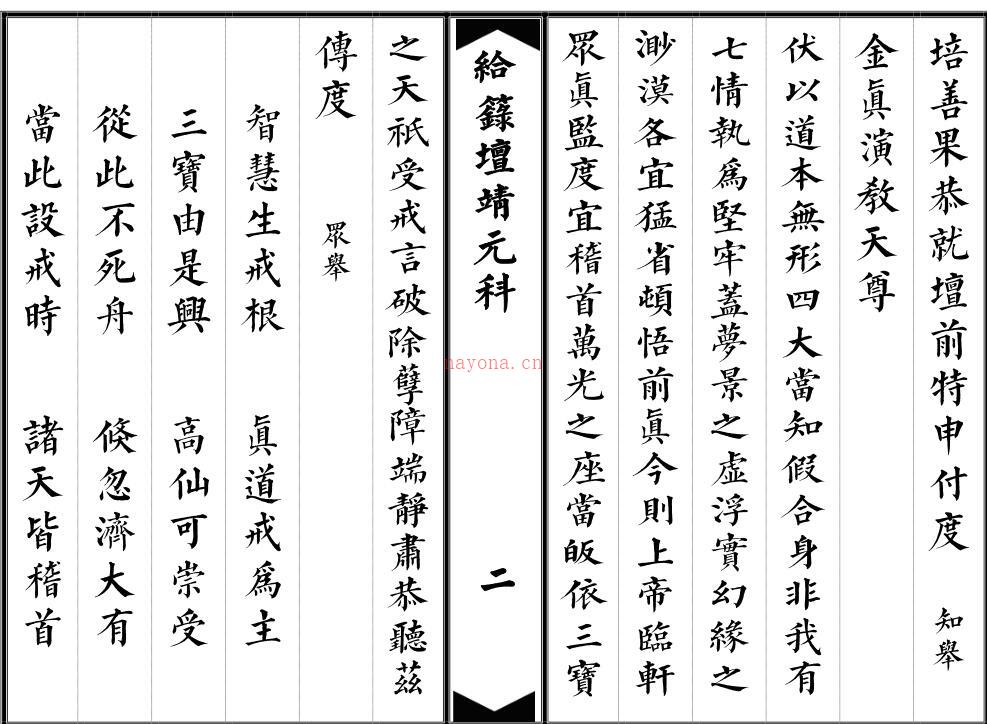 培善果恭就壇前特申付度 知舉
金眞演教天尊
伏以道本無形四大當知假合身非我有
七情執爲堅牢蓋夢景之虛浮實幻緣之
渺漠各宜猛省頓悟前眞今則上帝臨軒
眾眞監度宜稽首萬光之座當皈依三寶
給籙壇靖元科 二
之天祇受戒言破除孽障端靜肅恭聽茲
傳度 眾舉
智慧生戒根 眞道戒爲主
三寶由是興 高仙可崇受
從此不死舟 倏忽濟大有
當此設戒時 諸天皆稽首
nayona.cn